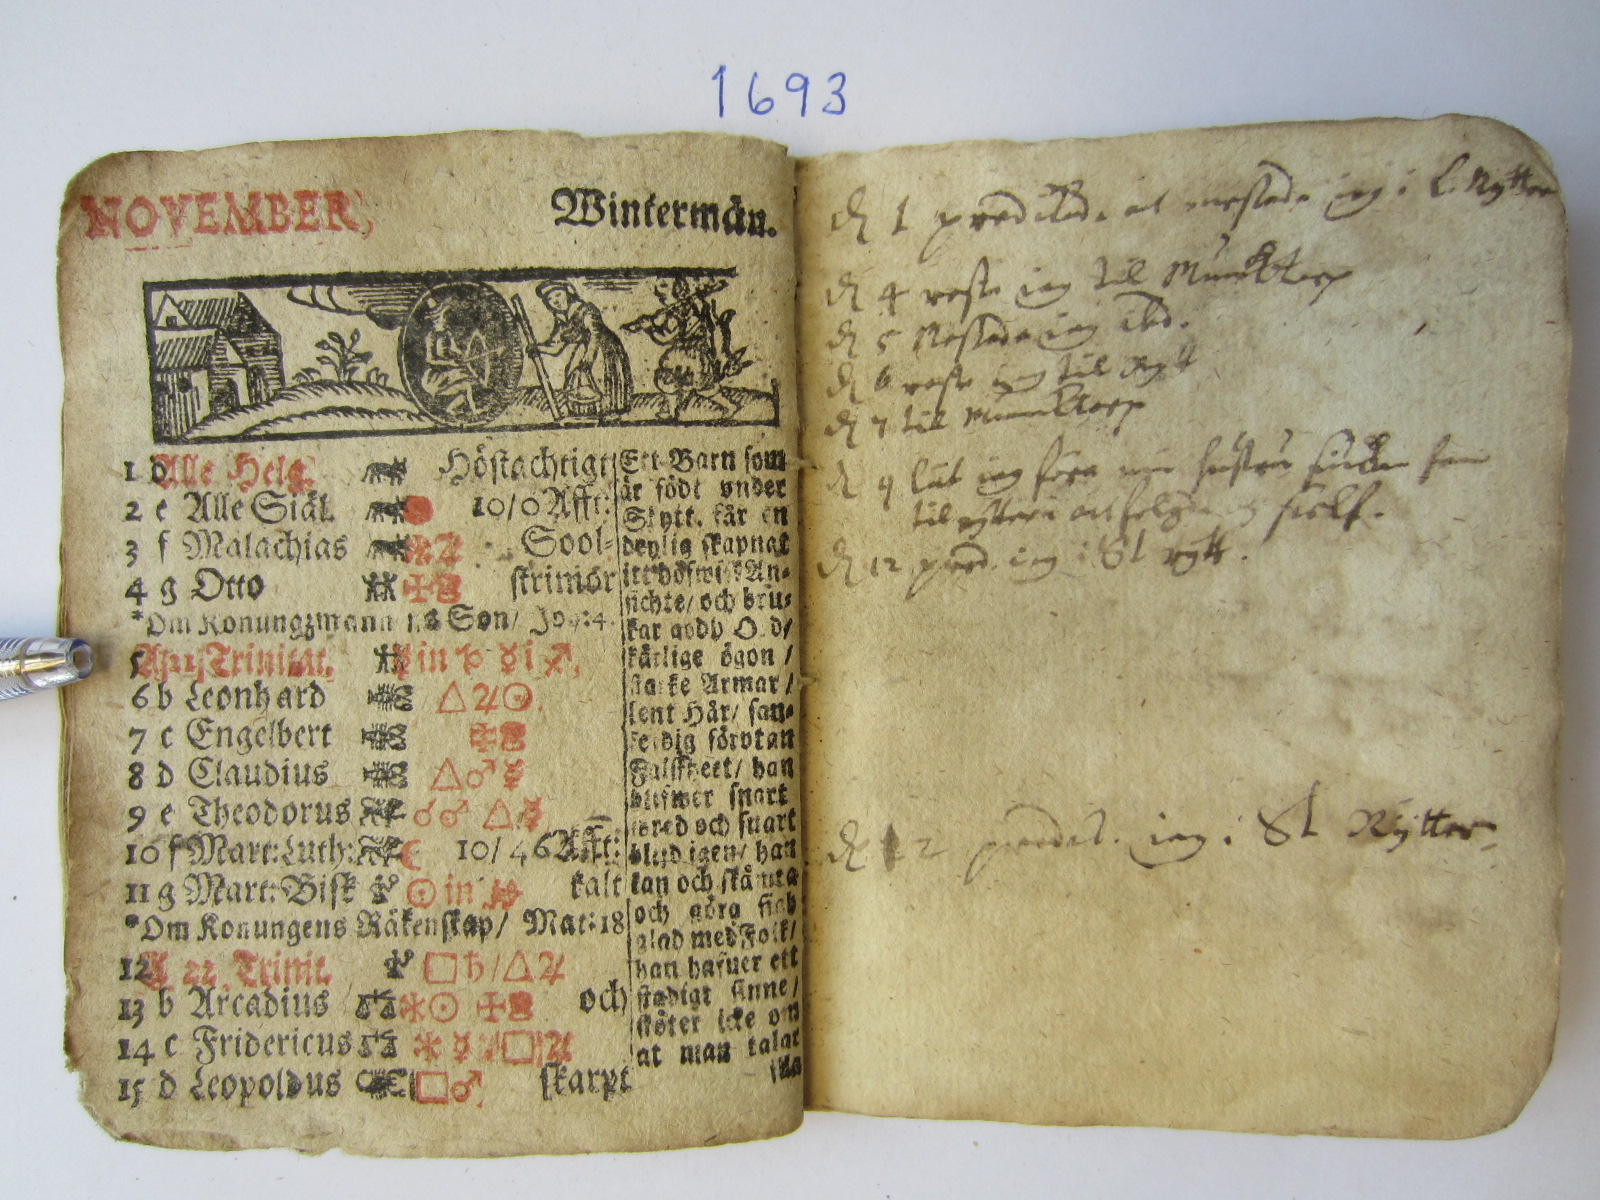 1693
NOVEMBER,
Wintermån.
1 d Alle Helg. Höstachtigt
2 e Alle Siäl. 10/0 Afft:
3 f Malachias ♃ Sool-
4 g Otto strimor
*Om Konungzmannens Son/ Joh: 4.
5 A 21 Trinitat. in ♄ ☿ i ♐,
6 b Leonhard △♃☉
7 c Engelbert
8 d Claudius △♂☿
9 e Theodorus ☌♂ △☿
10 f Mart: Luth: ☾ 10/46 Afft:
11 g Mart: Bisk ☉ in kalt
*Om Konungens Räkenskap/ Mat: 18
12 A 22 Trinit. □♄/△♃
13 b Arcadius *☉ och
14 c Fridericus * ☿ □♃
15 d Leopoldus □♂ skarpt
Ett Barn som
är födt under
Skytt. får en
deylig skapnat
itt höfwiskt An-
sichte/ och bru-
kar godh Ord/
kärlige ögon/
starke Armar/
lent Hår/ san-
ferdig förutan
Falskheet/ han
blifwer snart
wred och snart
blijd igen/ han
kan och skämta
och göra sigh
glad med Folk/
han hafuer ett
stadigt sinne/
sköter icke om
at man talar
ska
1 iag i L. Rytter
4 reste iag til Munktorp
5 iag ibd.
6 reste iag til Rytt
7 til Munktorp
9 lät iag föra min hustru
til Rytteren sielf.
12 pred. iag i St Rytt.
12 predik. iag i St Rytter-